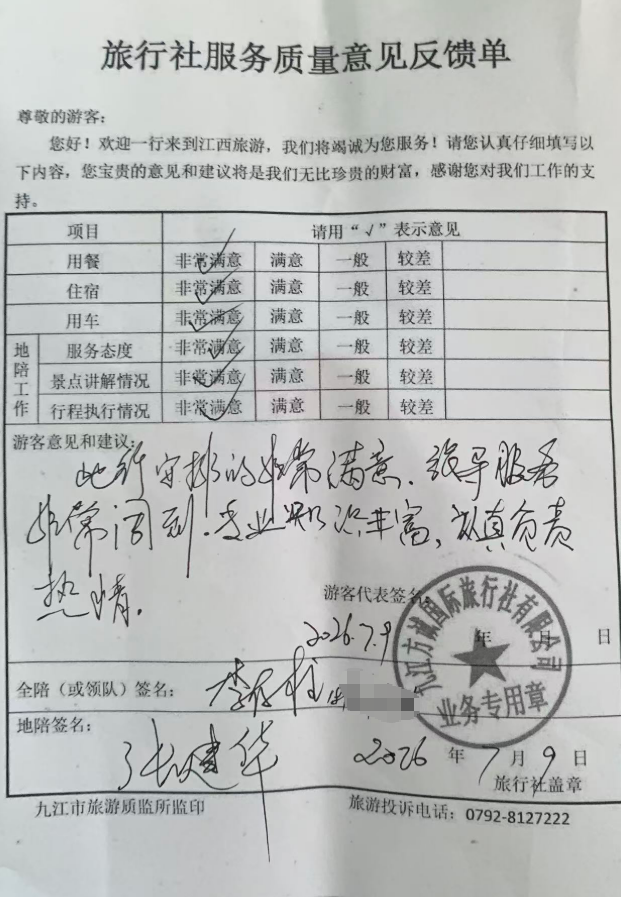 旅行社服务质量意见反馈单
尊敬的游客：
您好！欢迎一行来到江西旅游，我们将竭诚为您服务！请您认真仔细填写以
下内容，您宝贵的意见和建议将是我们无比珍贵的财富，感谢您对我们工作的支
持。
项目 请用“√”表示意见
用餐 非常满意 满意 一般 较差
住宿 非常满意 满意 一般 较差
用车 非常满意 满意 一般 较差
地陪工作
服务态度 非常满意 满意 一般 较差
景点讲解情况 非常满意 满意 一般 较差
行程执行情况 非常满意 满意 一般 较差
游客意见和建议：
此行安排的非常满意、领导服务
非常周到，专业知识丰富，认真负责
热情。
游客代表签名：
2026.7.9 年 月 日
九江方诚国际旅行社有限公司
业务专用章
全陪（或领队）签名： 李存柱
地陪签名： 张建华
2026 年 7 月 9 日
旅行社盖章
九江市旅游质监所监印 旅游投诉电话：0792-8127222